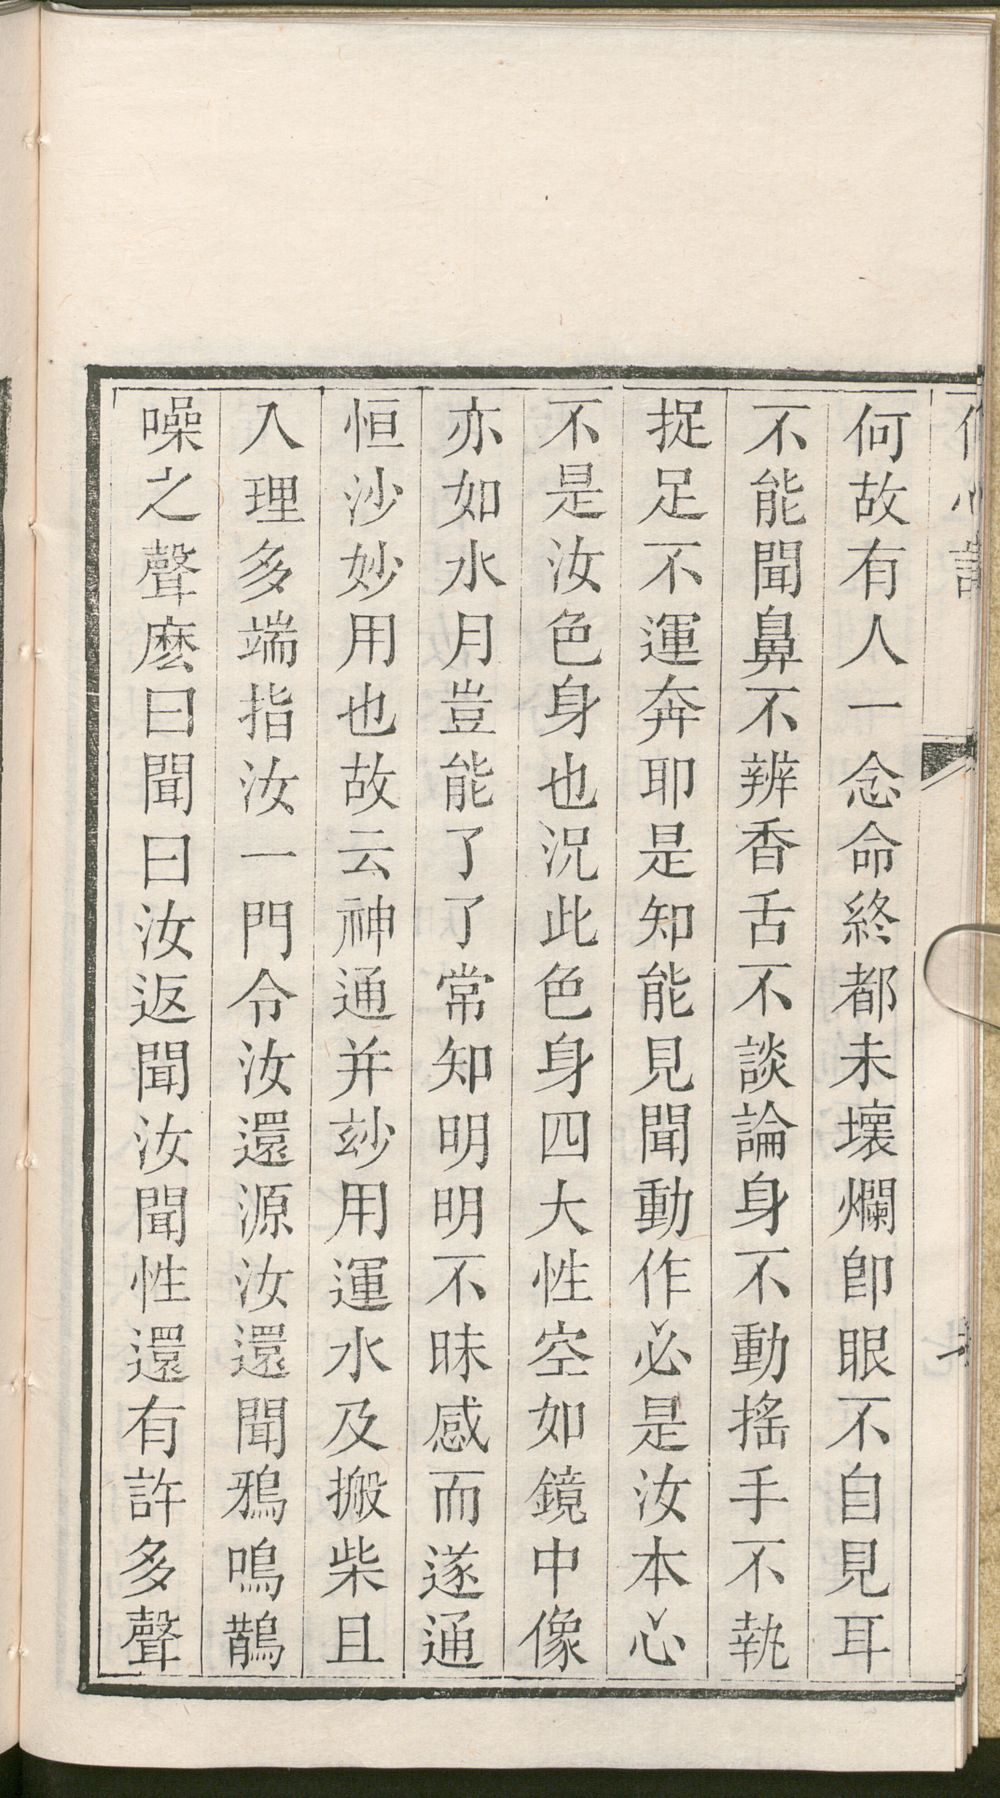 何故有人一念命終都未壞爛卽眼不自見耳
不能聞鼻不辨香舌不談論身不動搖手不執
捉足不運奔耶是知能見聞動作必是汝本心
不是汝色身也況此色身四大性空如鏡中像
亦如水月豈能了了常知明明不昧感而遂通
恒沙妙用也故云神通并玅用運水及搬柴且
入理多端指汝一門令汝還源汝還聞鴉鳴鵲
噪之聲麽曰聞曰汝返聞汝聞性還有許多聲